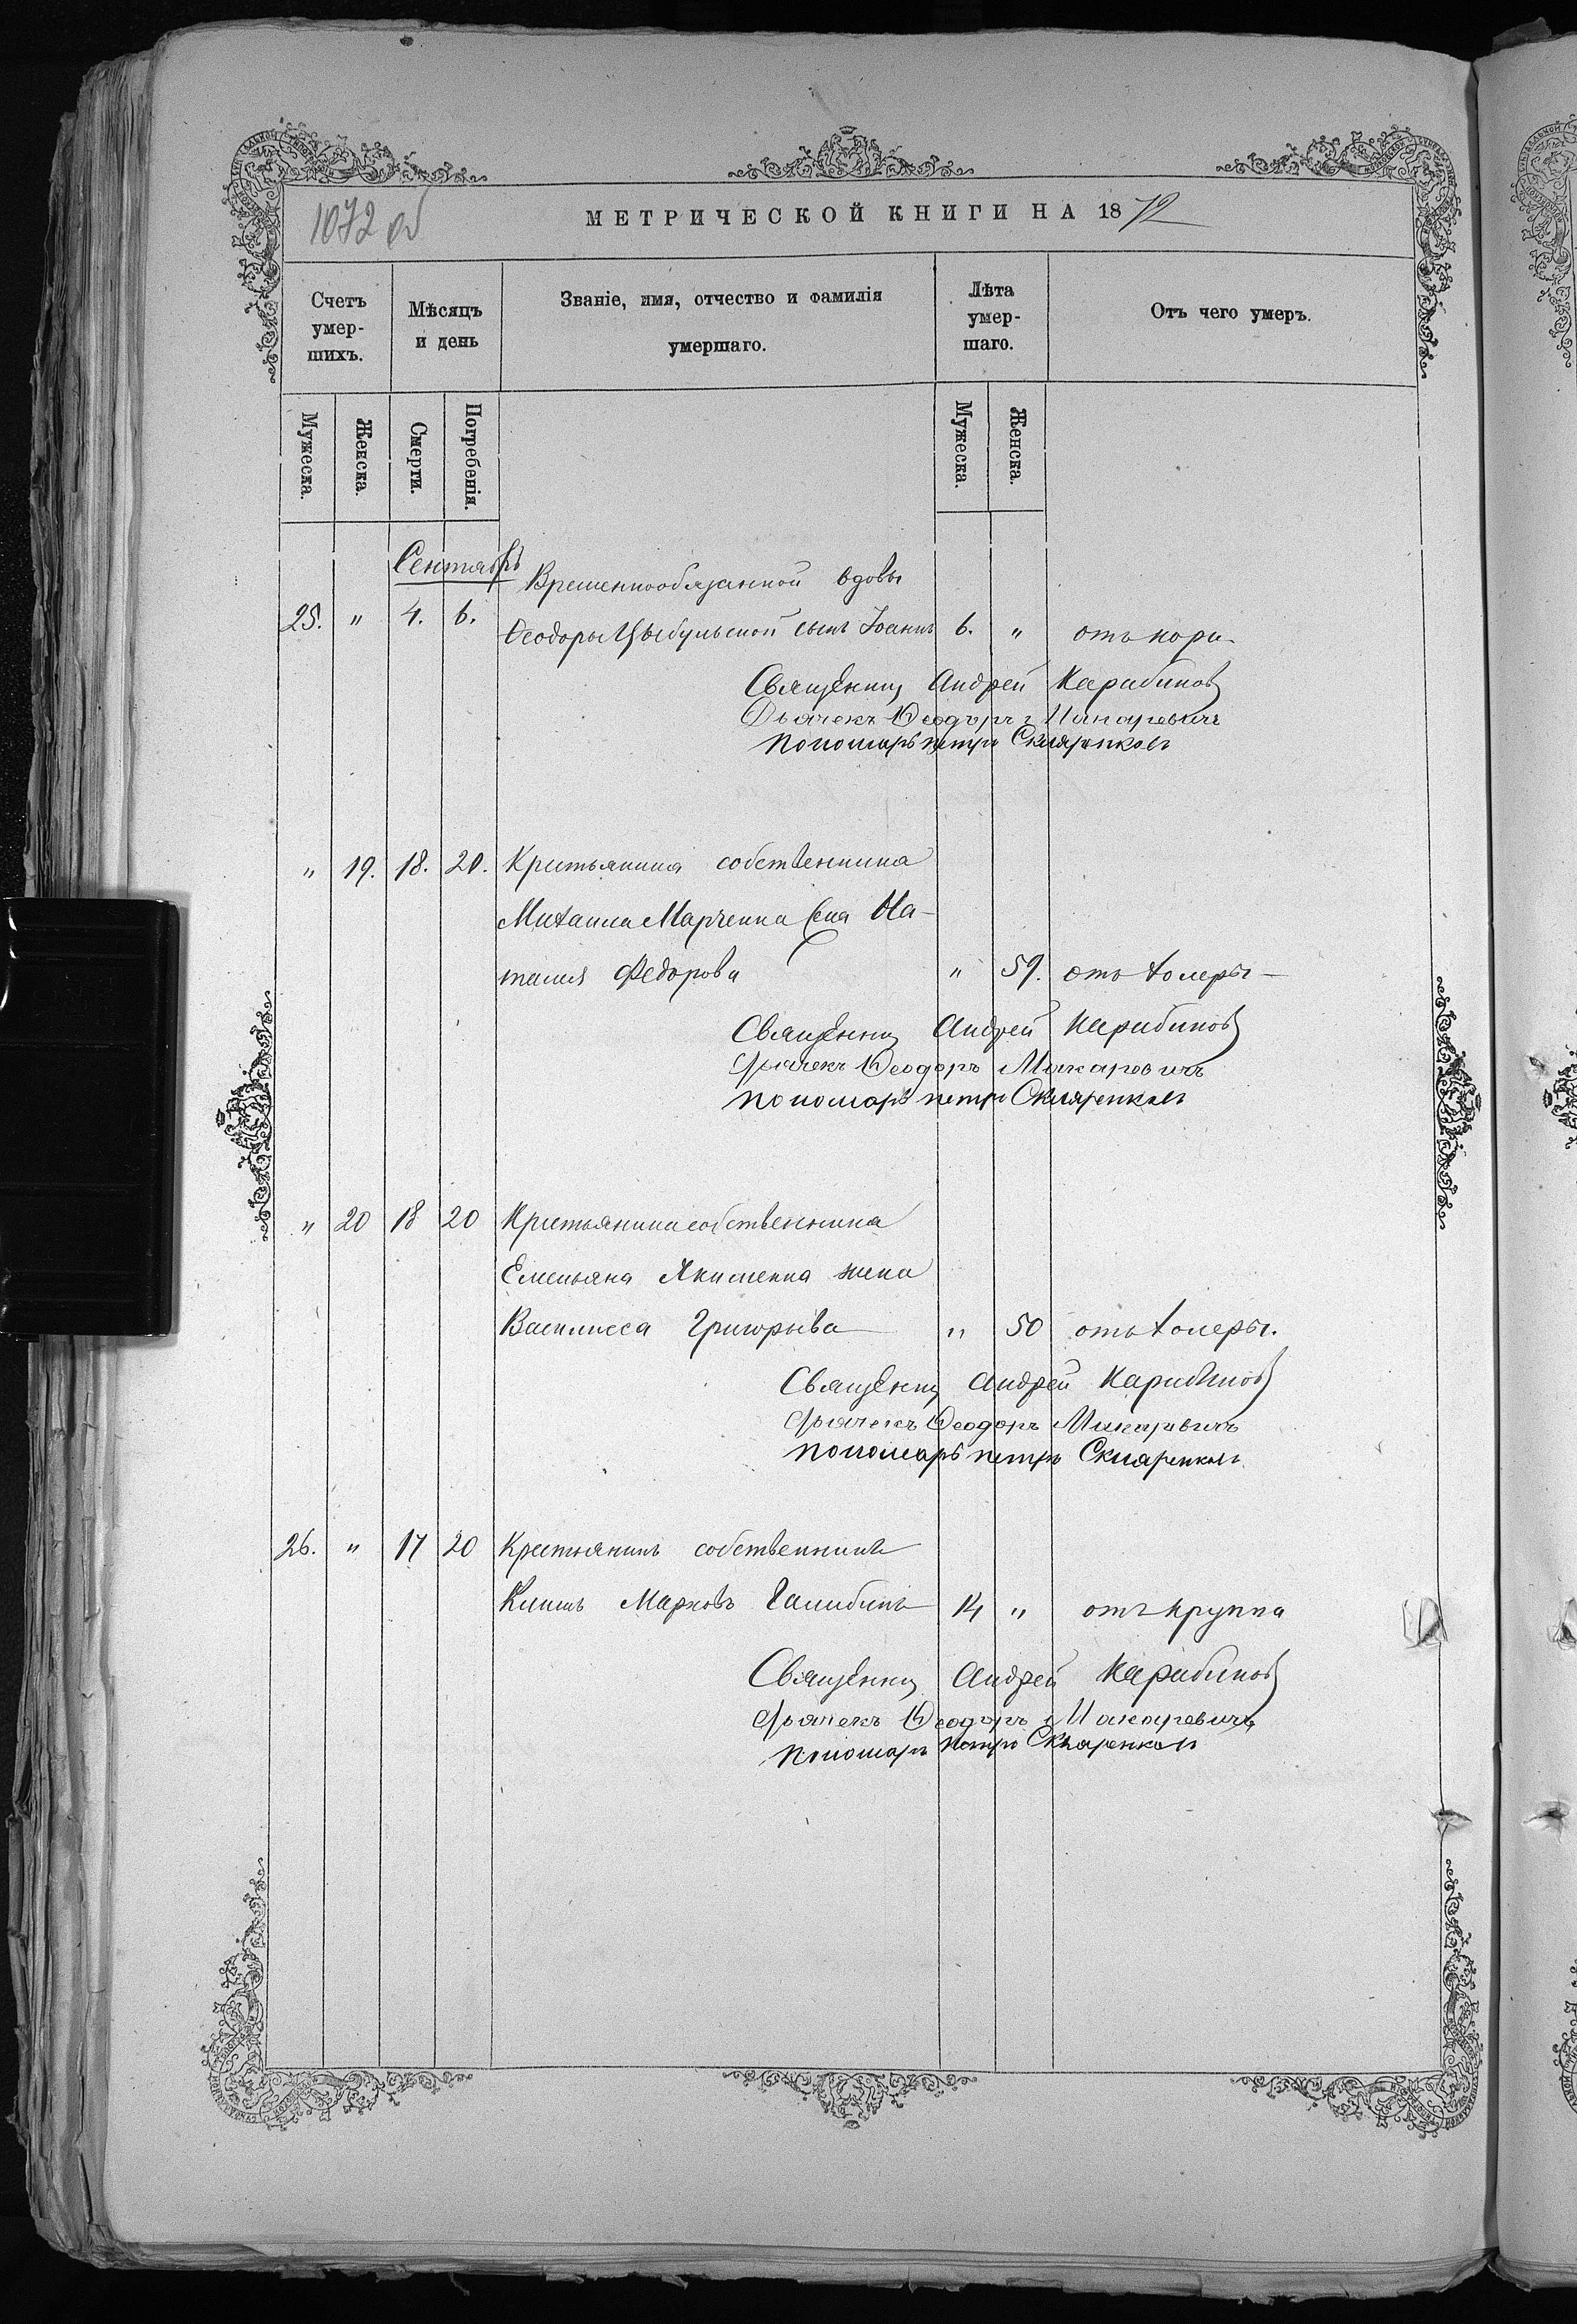 1072 об
МЕТРИЧЕСКОЙ КНИГИ НА 1872
Счетъ умер-шихъ.
Мѣсяцъ и день
Званіе, имя, отчество и фамилія умершаго.
Лѣта умер-шаго.
Отъ чего умеръ.
Мужеска. Женска. Смерти. Погребенія. Мужеска. Женска.
Сентябрь
Временнообязанной вдовы
25. " 4. 6. Ѳеодоры Цыбульской сынъ Іоаннъ 6. " отъ кори
Священникъ Андрей Карабиновъ
Дьячекъ Ѳеодоръ Макаревичъ
Пономарь Петръ Скляренковъ
" 19. 18. 20. Крестьянина собственника
Михаила Марченка жена На-
талия Федорова " 59. отъ холеры
Священникъ Андрей Карабиновъ
Дьячекъ Ѳеодоръ Макаревичъ
Пономарь Петръ Скляренковъ
" 20 18 20 Крестьянина собственника
Емельяна Якименка жена
Василисса Григорьева " 50 отъ холеры.
Священникъ Андрей Карабиновъ
Дьячекъ Ѳеодоръ Макаревичъ
Пономарь Петръ Скляренковъ
26. " 17 20 Крестьянинъ собственникъ
Климъ Марковъ 14 " отъ круппа
Священникъ Андрей Карабиновъ
Дьячекъ Ѳеодоръ Макаревичъ
Пономарь Петръ Скляренковъ